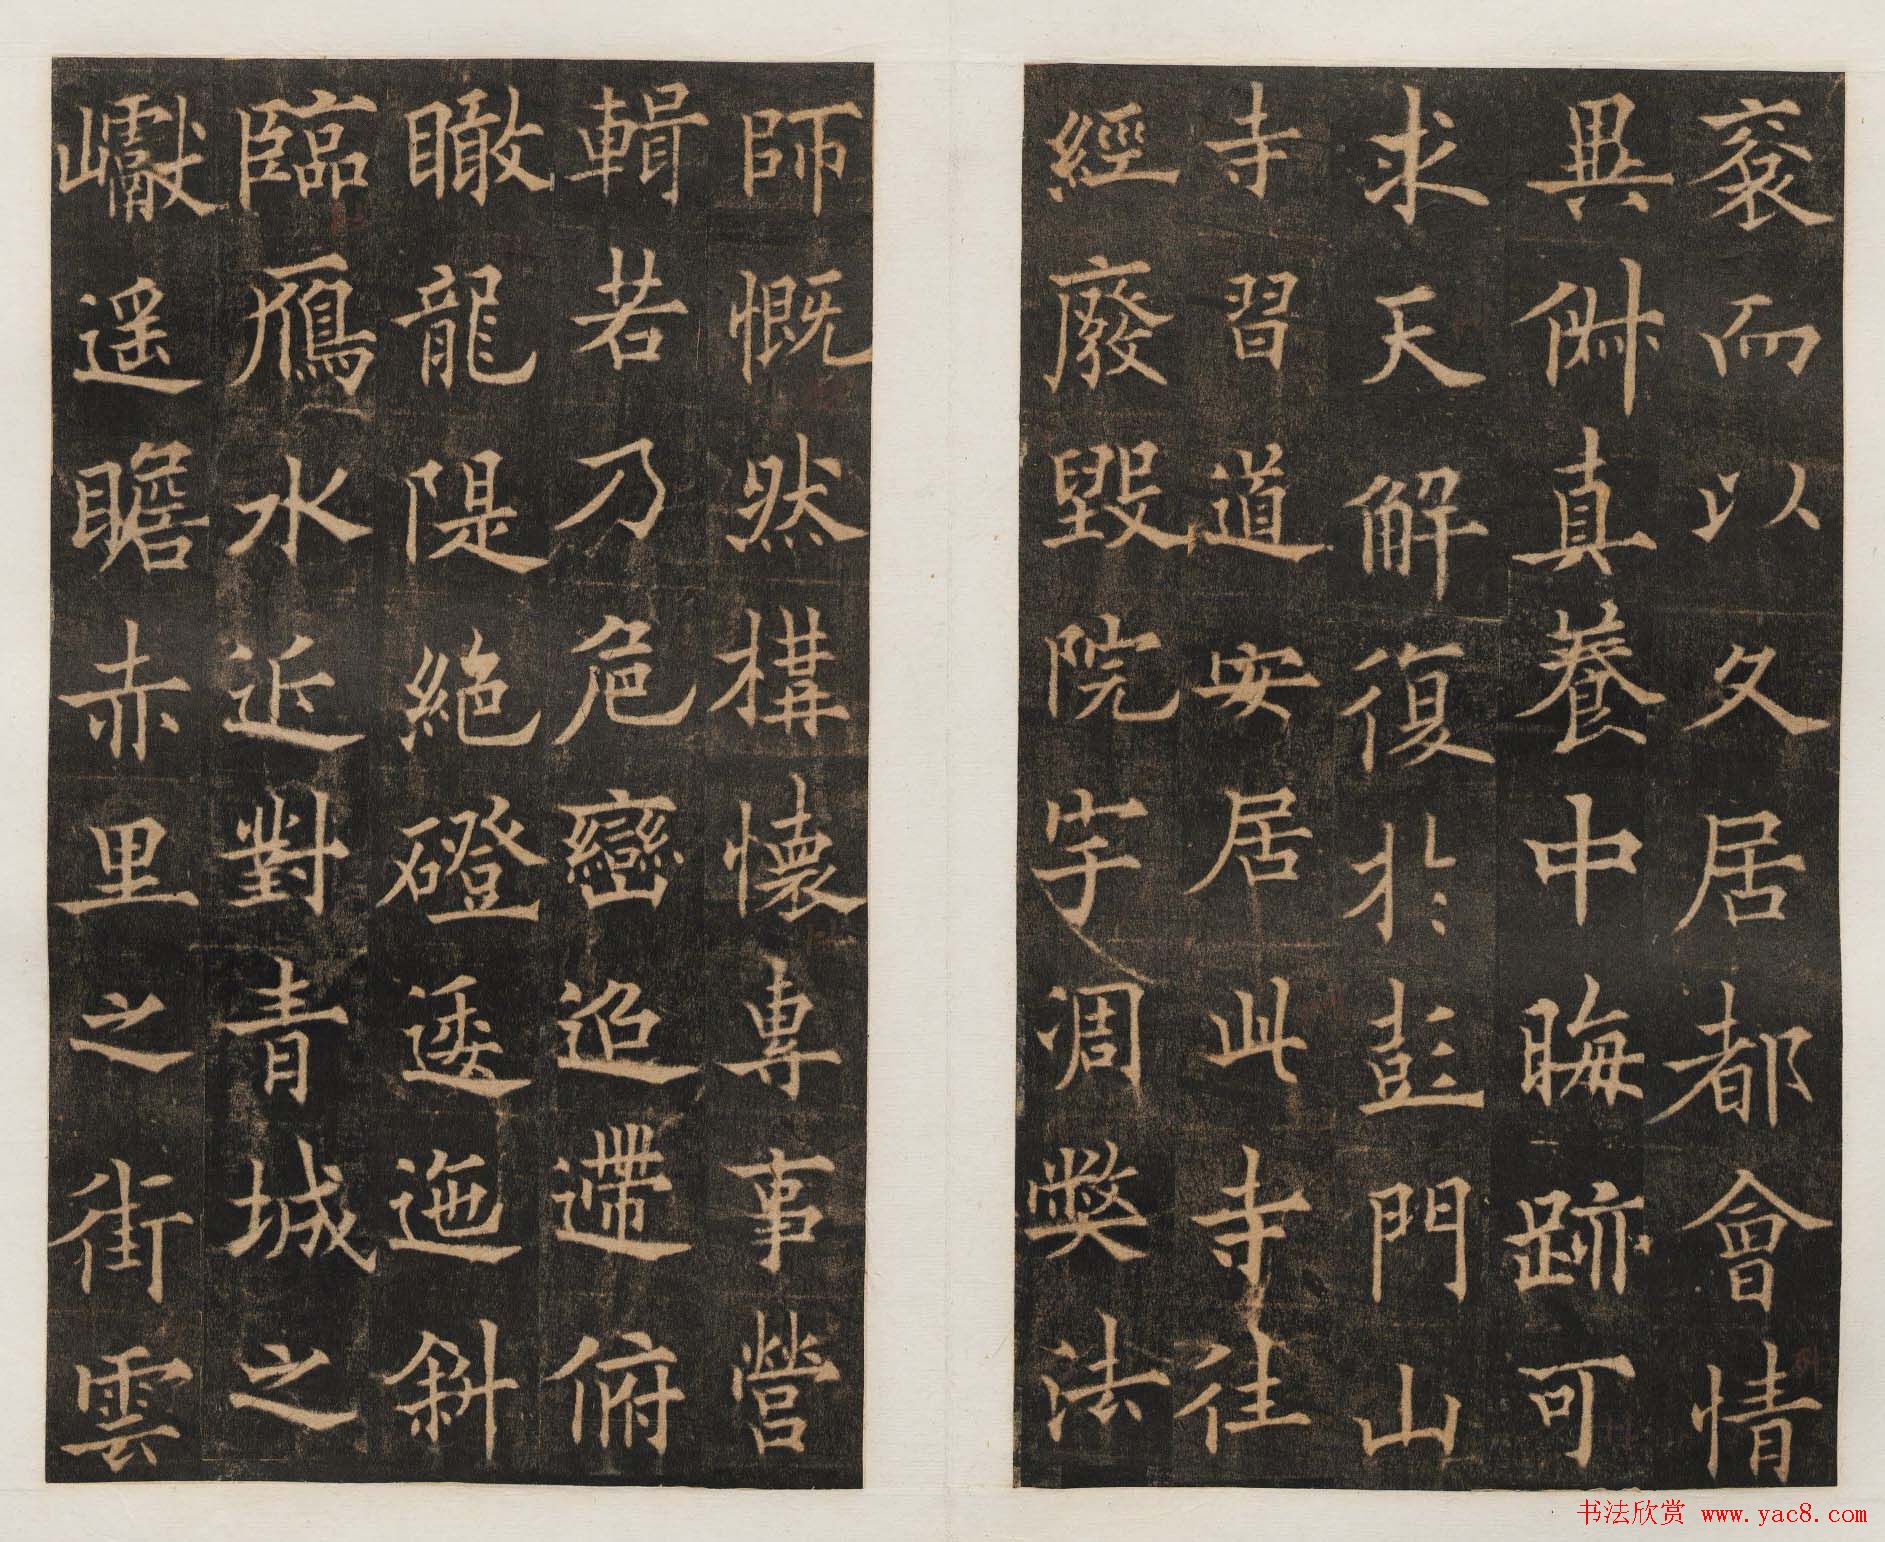 襃而以久居都會情
異俶真養中晦跡可
求天解復於彭門山
寺習道安居此寺往
經廢毀院宇凋獘法
師慨然構懷專事營
輯若乃危巒迢遰俯
瞰龍隄絕磴逶迆斜
臨鴈水近對青城之
巘遥瞻赤里之街雲
书法欣赏 www.yac8.com